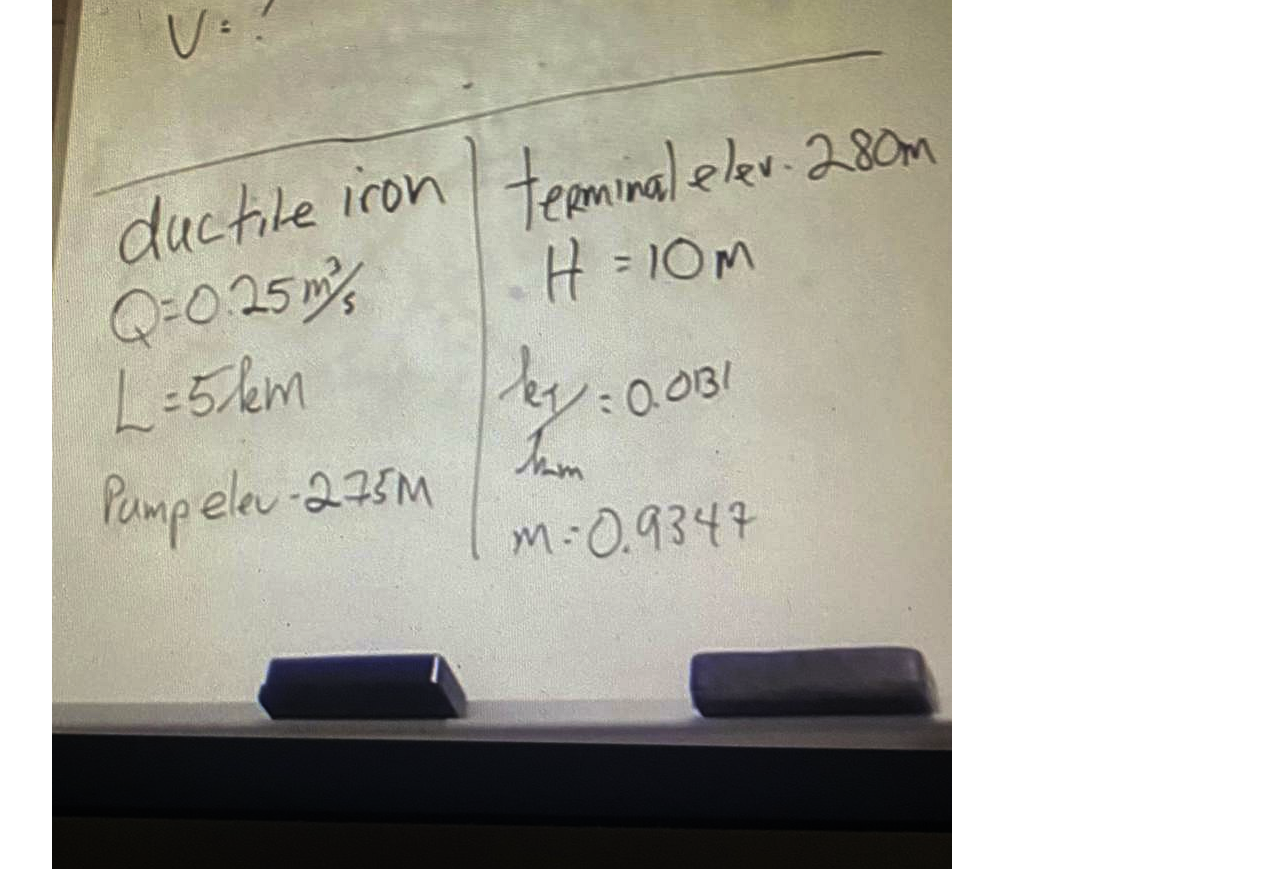 V = ?
ductile iron
Q=0.25 m³/s
L=5km
Pump elev-275M
terminal elev. 280m
H = 10m
= 0.0131
m=0.9347